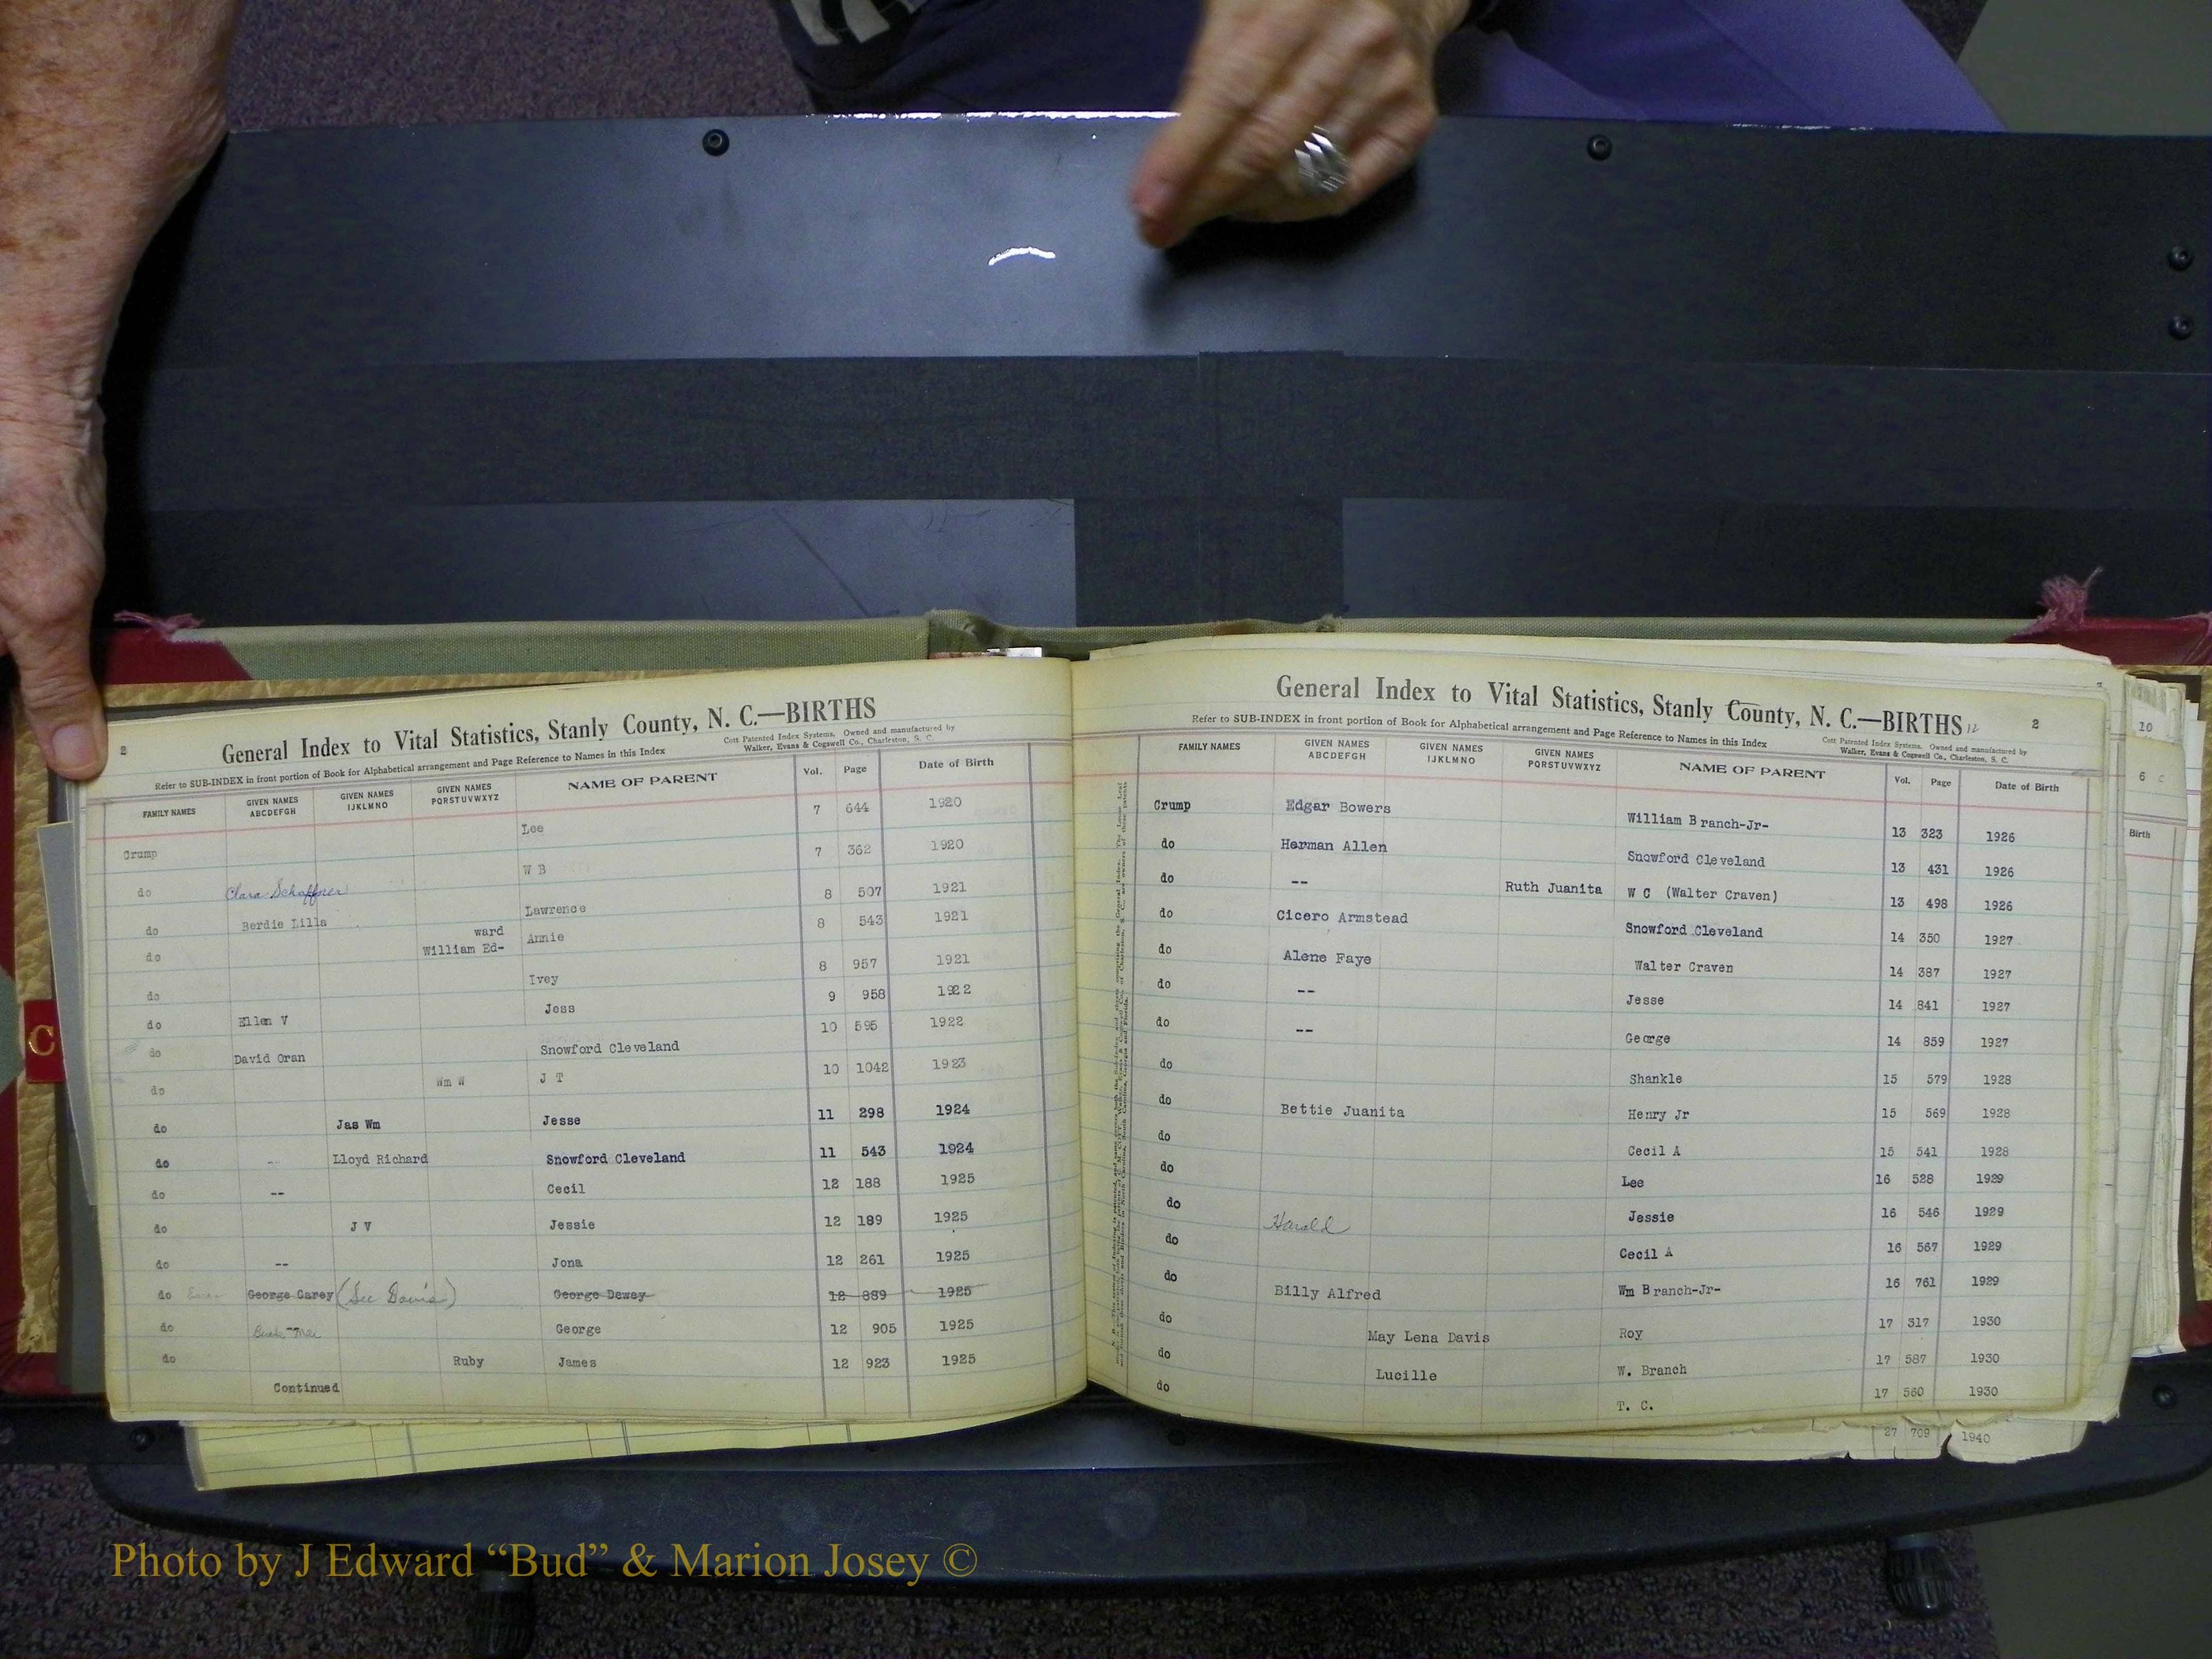 2
General Index to Vital Statistics, Stanly County, N. C.—BIRTHS
Refer to SUB-INDEX in front portion of Book for Alphabetical arrangement and Page Reference to Names in this Index
Cott Patented Index Systems. Owned and manufactured by
Walker, Evans & Cogswell Co., Charleston, S. C.
FAMILY NAMES GIVEN NAMES ABCDEFGH GIVEN NAMES IJKLMNO GIVEN NAMES PQRSTUVWXYZ NAME OF PARENT Vol. Page Date of Birth
Crump Lee 7 644 1920
do Clara Schaffner W B 7 362 1920
do Berdie Lilla Lawrence 8 507 1921
do William Ed-ward Annie 8 543 1921
do Ivey 8 957 1921
do Ellen V Jess 9 958 1922
do David Oran Snowford Cleveland 10 595 1922
do Wm W J T 10 1042 1923
do Jas Wm Jesse 11 298 1924
do -- Lloyd Richard Snowford Cleveland 11 543 1924
do -- Cecil 12 188 1925
do J V Jessie 12 189 1925
do -- Jona 12 261 1925
do George Carey (See Davis) George Dewey 12 889 1925
do George 12 905 1925
do Ruby James 12 923 1925
Continued
General Index to Vital Statistics, Stanly County, N. C.—BIRTHS 12
2
Refer to SUB-INDEX in front portion of Book for Alphabetical arrangement and Page Reference to Names in this Index
Cott Patented Index Systems. Owned and manufactured by
Walker, Evans & Cogswell Co., Charleston, S. C.
FAMILY NAMES GIVEN NAMES ABCDEFGH GIVEN NAMES IJKLMNO GIVEN NAMES PQRSTUVWXYZ NAME OF PARENT Vol. Page Date of Birth
Crump Edgar Bowers William Branch-Jr- 13 323 1926
do Herman Allen Snowford Cleveland 13 431 1926
do -- Ruth Juanita W C (Walter Craven) 13 498 1926
do Cicero Armstead Snowford Cleveland 14 350 1927
do Alene Faye Walter Craven 14 387 1927
do -- Jesse 14 841 1927
do -- George 14 859 1927
do Shankle 15 579 1928
do Bettie Juanita Henry Jr 15 569 1928
do Cecil A 15 541 1928
do Lee 16 528 1929
do Harold Jessie 16 546 1929
do Cecil A 16 567 1929
do Billy Alfred Wm Branch-Jr- 16 761 1929
do May Lena Davis Roy 17 317 1930
do Lucille W. Branch 17 587 1930
do T. C. 17 560 1930
27 709 1940
10
6 C
Birth
C
Photo by J Edward “Bud” & Marion Josey ©